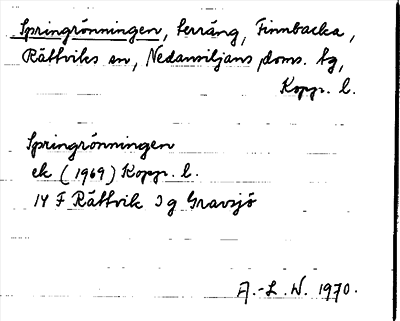 Springrönningen, terräng, Finnbacka,
Rättviks sn, Nedansiljans doms. tg,
Kopp. l.
Springrönningen
ek (1969) Kopp. l.
14 F Rättvik 3 g Gravsjö
A.-L. W. 1970.